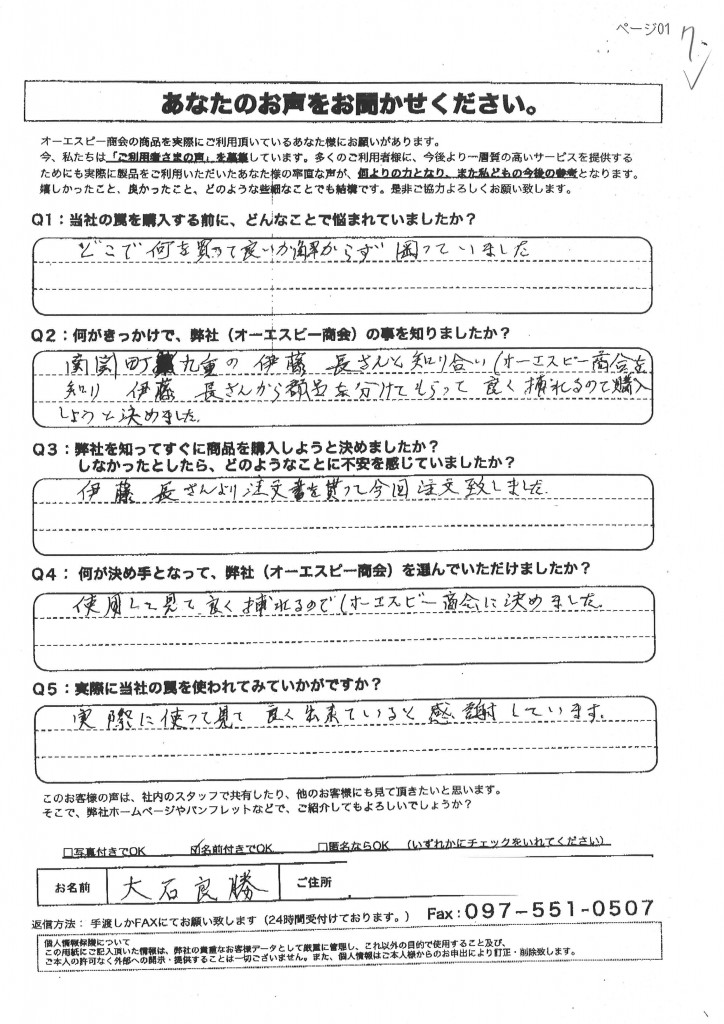 ページ01
あなたのお声をお聞かせください。
オーエスピー商会の商品を実際にご利用頂いているあなた様にお願いがあります。
今、私たちは「ご利用者さまの声」を募集しています。多くのご利用者様に、今後より一層質の高いサービスを提供する
ためにも実際に製品をご利用いただいたあなた様の率直な声が、何よりの力となり、また私どもの今後の参考となります。
嬉しかったこと、良かったこと、どのような些細なことでも結構です。是非ご協力よろしくお願い致します。
Q1：当社の罠を購入する前に、どんなことで悩まれていましたか？
どこで何を買って良いか解からず困っていました
Q2：何がきっかけで、弊社（オーエスピー商会）の事を知りましたか？
町 九重の 伊藤 長さんと知り合い(オーエスピー商会を
知り 伊藤 長さんから を分けてもらって 良く捕れるので購入
しようと決めました.
Q3：弊社を知ってすぐに商品を購入しようと決めましたか？
しなかったとしたら、どのようなことに不安を感じていましたか？
伊藤 長さんより注文書を貰って今回注文致しました.
Q4： 何が決め手となって、弊社（オーエスピー商会）を選んでいただけましたか？
使用して見て良く捕れるので(オーエスピー商会に決めました.
Q5：実際に当社の罠を使われてみていかがですか？
実際に使って見て 良く出来ていると感謝しています.
このお客様の声は、社内のスタッフで共有したり、他のお客様にも見て頂きたいと思います。
そこで、弊社ホームページやパンフレットなどで、ご紹介してもよろしいでしょうか？
□写真付きでOK ☑名前付きでOK □匿名ならOK （いずれかにチェックをいれてください）
お名前 大石良勝 ご住所
返信方法： 手渡しかFAXにてお願い致します（24時間受付けております。） Fax：097-551-0507
個人情報保護について
この用紙にご記入頂いた情報は、弊社の貴重なお客様データとして厳重に管理し、これ以外の目的で使用すること及び、
ご本人の許可なく外部への開示・提供することは一切ございません。また、個人情報はご本人様からのお申出により訂正・削除致します。